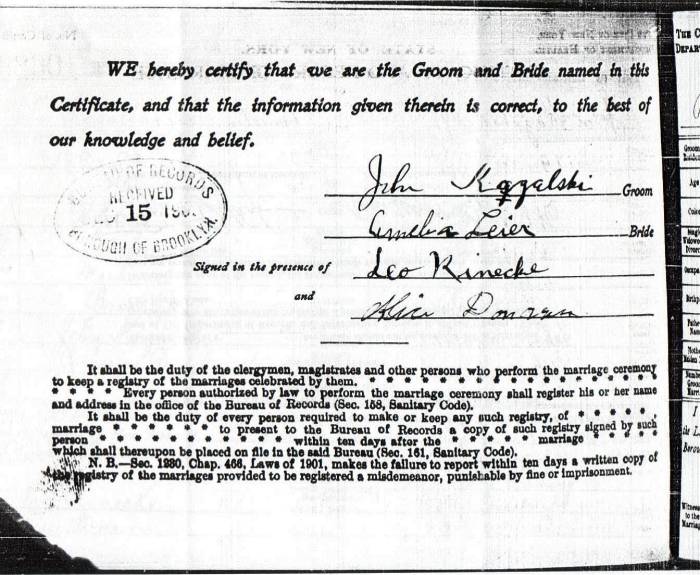 WE hereby certify that we are the Groom and Bride named in this
Certificate, and that the information given therein is correct, to the best of
our knowledge and belief.
OF RECORDS
RECEIVED
15 190
BOROUGH OF BROOKLYN.
John Kozalski Groom
Amelia Leier Bride
Signed in the presence of Leo Rinecke
and
Alice Donovan
It shall be the duty of the clergymen, magistrates and other persons who perform the marriage ceremony
to keep a registry of the marriages celebrated by them. * * * * * * * * * * * * * * * *
* * * * Every person authorized by law to perform the marriage ceremony shall register his or her name
and address in the office of the Bureau of Records (Sec. 158, Sanitary Code).
It shall be the duty of every person required to make or keep any such registry, of * * * * * *
marriage * * * * * * to present to the Bureau of Records a copy of such registry signed by such
person * * * * * * * * * * * * within ten days after the * * * * * * marriage * * * * *
which shall thereupon be placed on file in the said Bureau (Sec. 161, Sanitary Code).
N. B.—Sec. 1280, Chap. 466, Laws of 1901, makes the failure to report within ten days a written copy of
the registry of the marriages provided to be registered a misdemeanor, punishable by fine or imprisonment.
THE C
DEPAR
Groom
Age